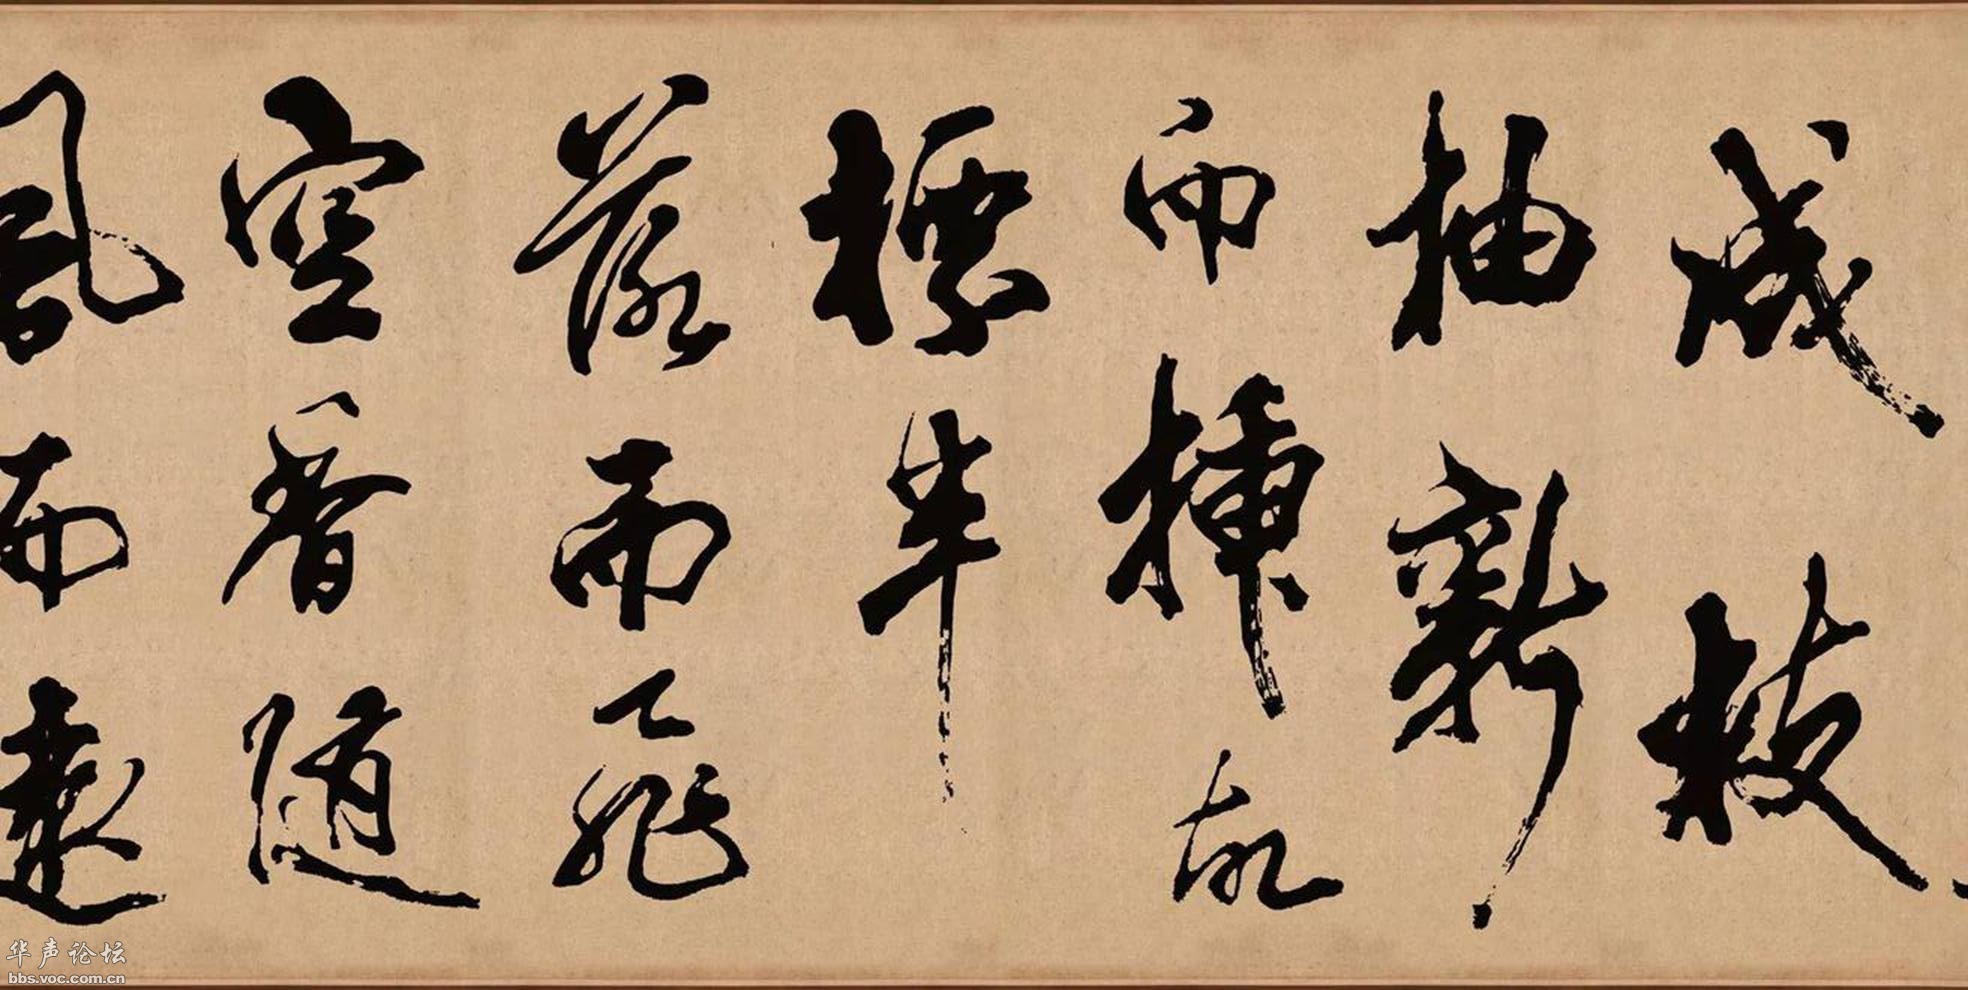 成枝
抽新
而插故
標半
落而飛
空香隨
風而遠
华声论坛
bbs.voc.com.cn